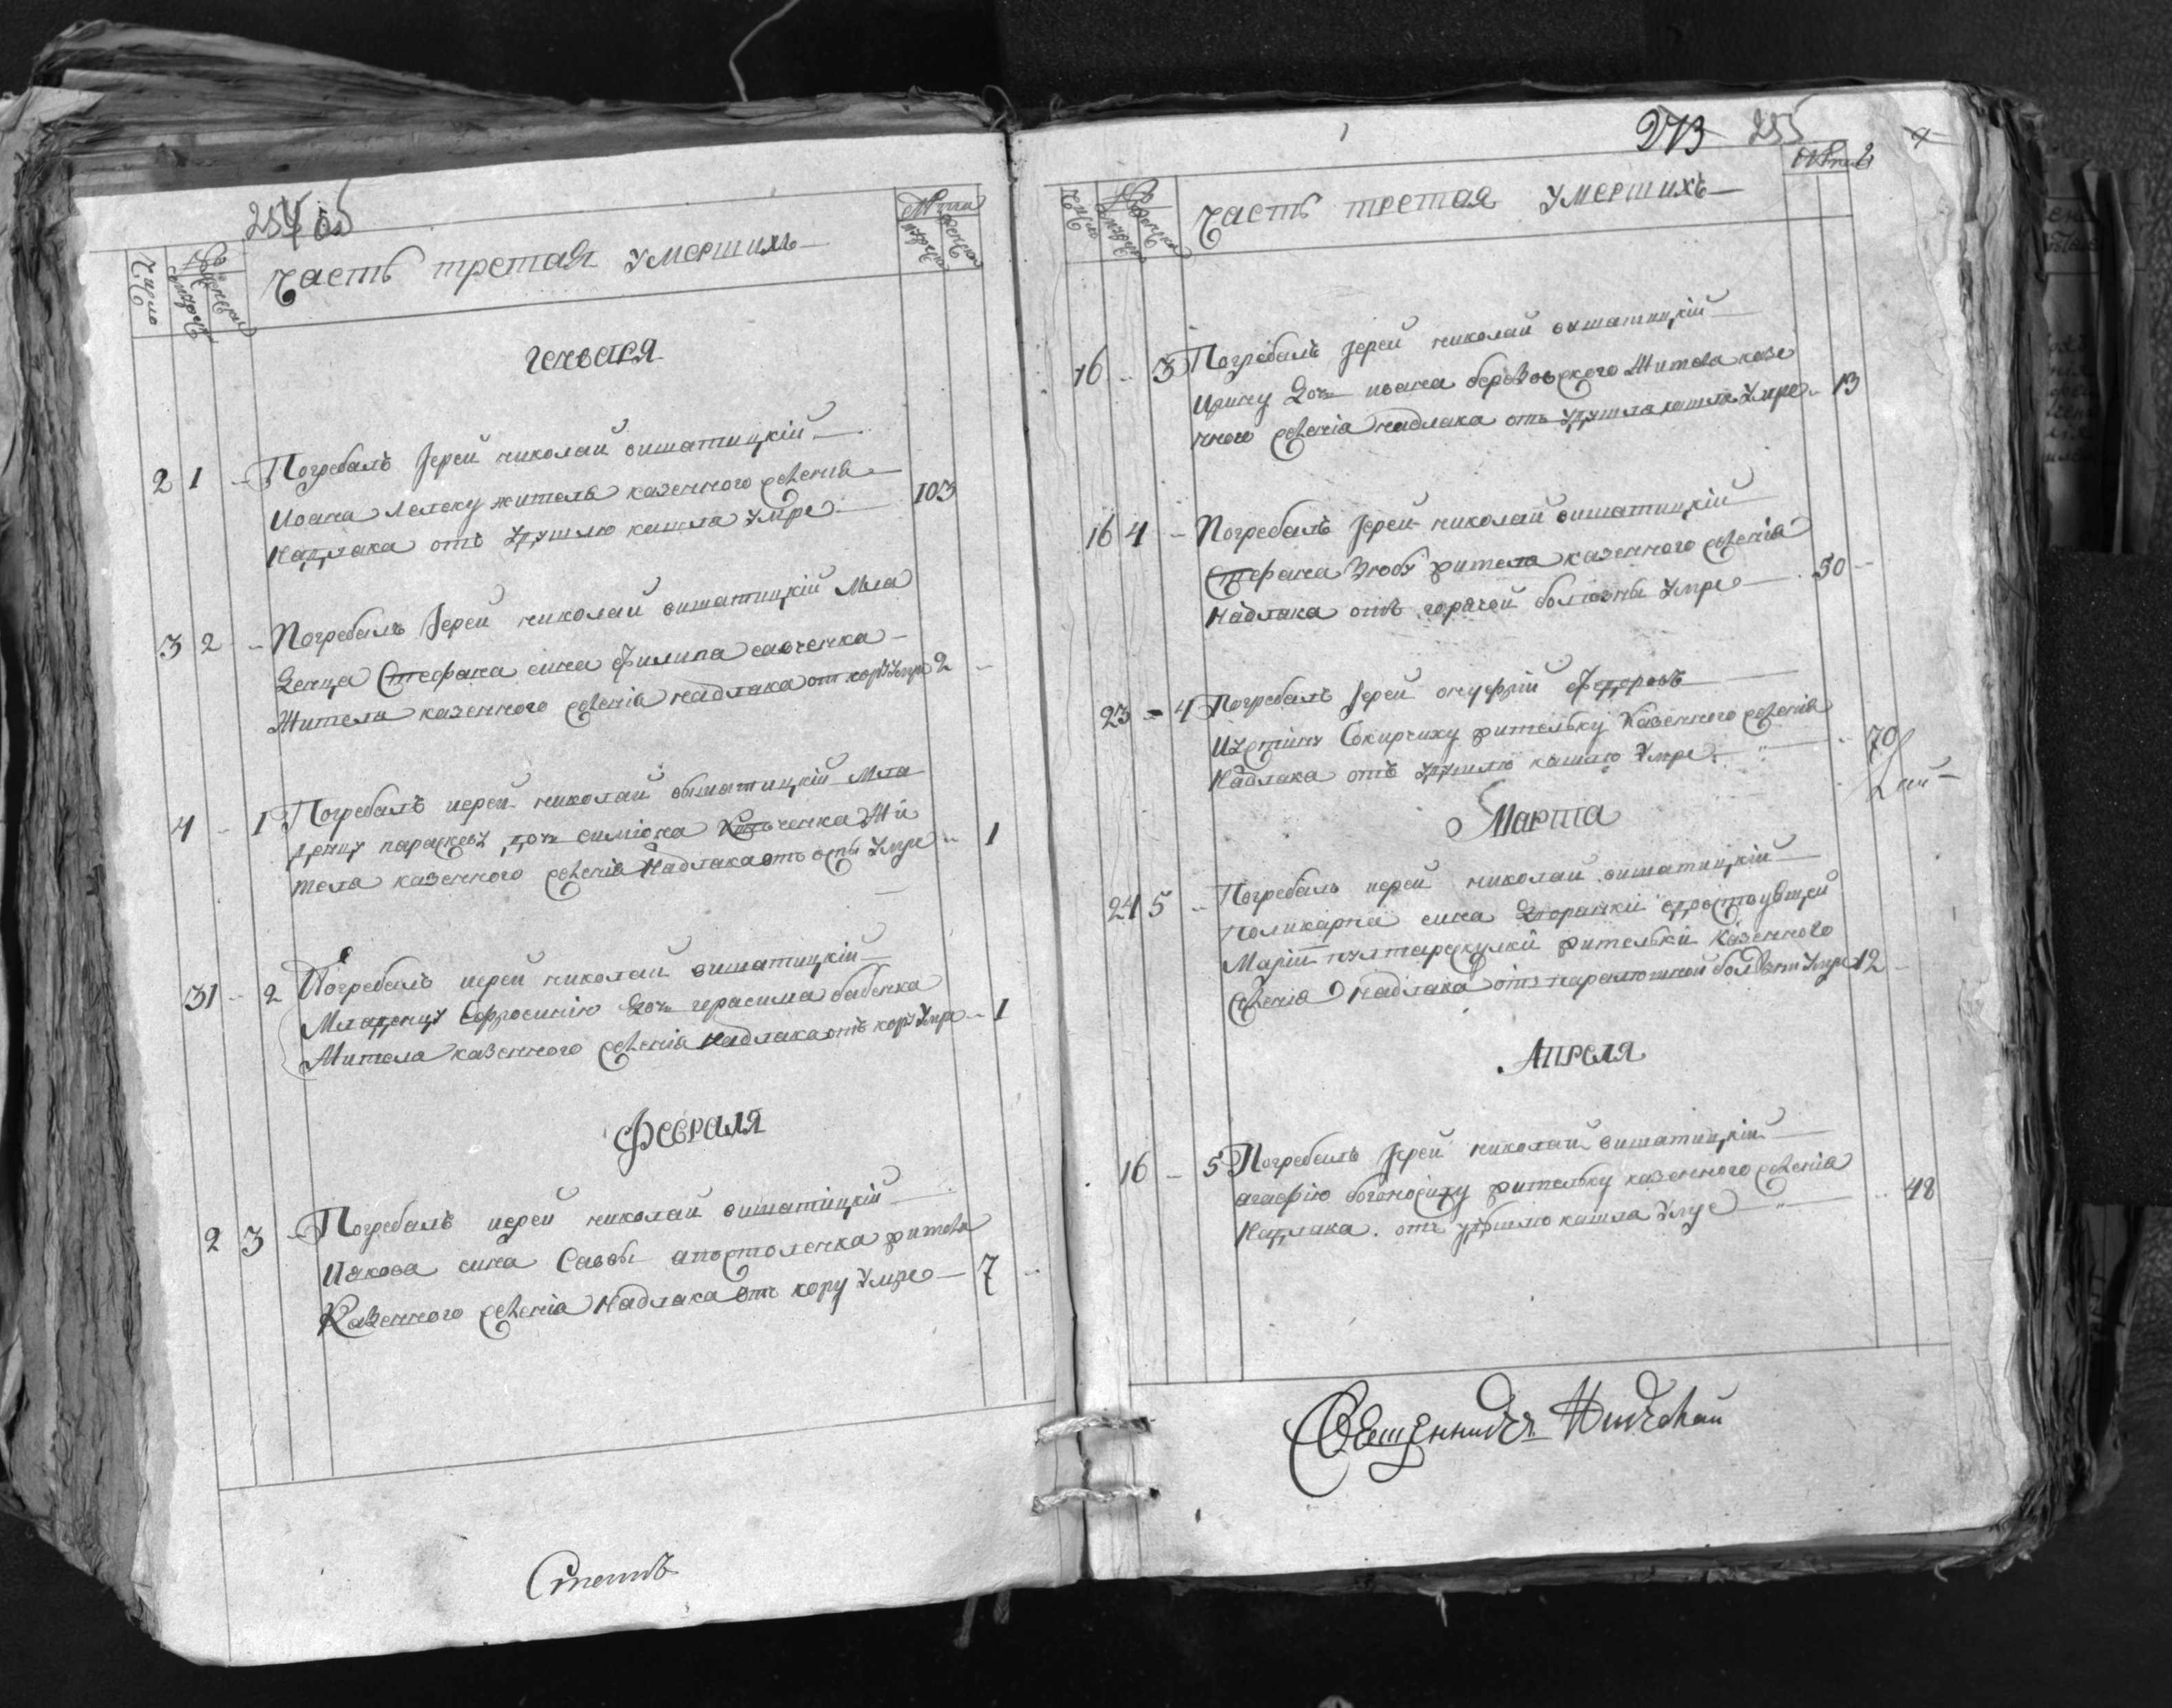 254
Число
Часть третая умершихъ
Генваря
2 1 Погребалъ Іерей николай вишатицкій
Иоана Лелеку жителя казенного селенія
Надлака отъ удушлю кашла умре 103
3 2 Погребалъ Іерей николай вишатицкій Мла
денца Стефана сина Филипа савченка
Жителя казенного селенія надлака от кору умре 2
4 1 Погребалъ иерей николай вишатицкій мла
денцу параскеву дочь симиона ченка Жи
теля казенного селенія Надлака отъ оспы умре 1
31 2 Погребалъ иерей николай вишатицкій
Младенцу Ефросинію дочь герасима бабенка
Жителя казенного селенія надлака отъ кору умре 1
Февраля
2 3 Погребалъ иерей николай вишатицкій
Иякова сина Савы апостоленка жителя
Казенного селенія Надлака отъ кору умре 7
273 255
Число
Часть третая умершихъ
16 3 Погребалъ Іерей николай вишатицкій
Ирину дочь ивана березовского Жителя казе
нного селенія надлака отъ удушла кашла умре 13
16 4 Погребалъ Іерей николай вишатицкій
Стефана жителя казенного селенія
Надлака отъ горячей болюзны умре 50
23 4 Погребалъ Іерей онуфрій Федоровъ
Иустину Сокирчиху жительку казенного селенія
Надлака отъ удушлю кашлю умре 70
Марта
24 5 Погребалъ иерей николай вишатицкій
поликарпа сина вдовствующей
Маріи жительки казенного
селенія Надлака отъ паралюшной болезни умре 12
Апреля
16 5 Погребалъ Іерей николай вишатицкій
агафію богоносицу жительку казенного селенія
Надлака отъ удушлю кашла умре 48
Священникъ Николай